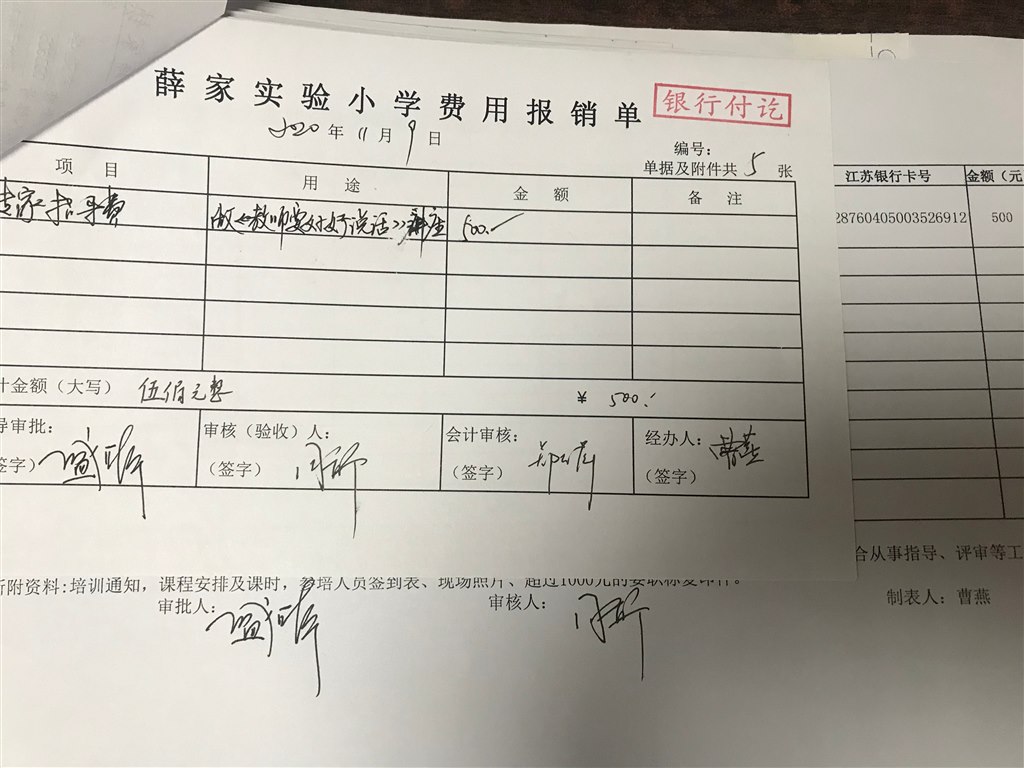 薛家实验小学费用报销单
银行付讫
2020年11月9日
编号：
单据及附件共5张
项 目 用 途 金 额 备 注
专家指导费 做《教师要好好说话》讲座 500.-
计金额（大写） 伍佰元整 ¥ 500.-
导审批： 审核（验收）人： 会计审核： 经办人：曹燕
签字） （签字） （签字） （签字）
江苏银行卡号 金额（元
28760405003526912 500
合从事指导、评审等工
所附资料:培训通知，课程安排及课时，参培人员签到表、现场照片、超过1000元的要职称复印件。
审批人： 审核人： 制表人：曹燕